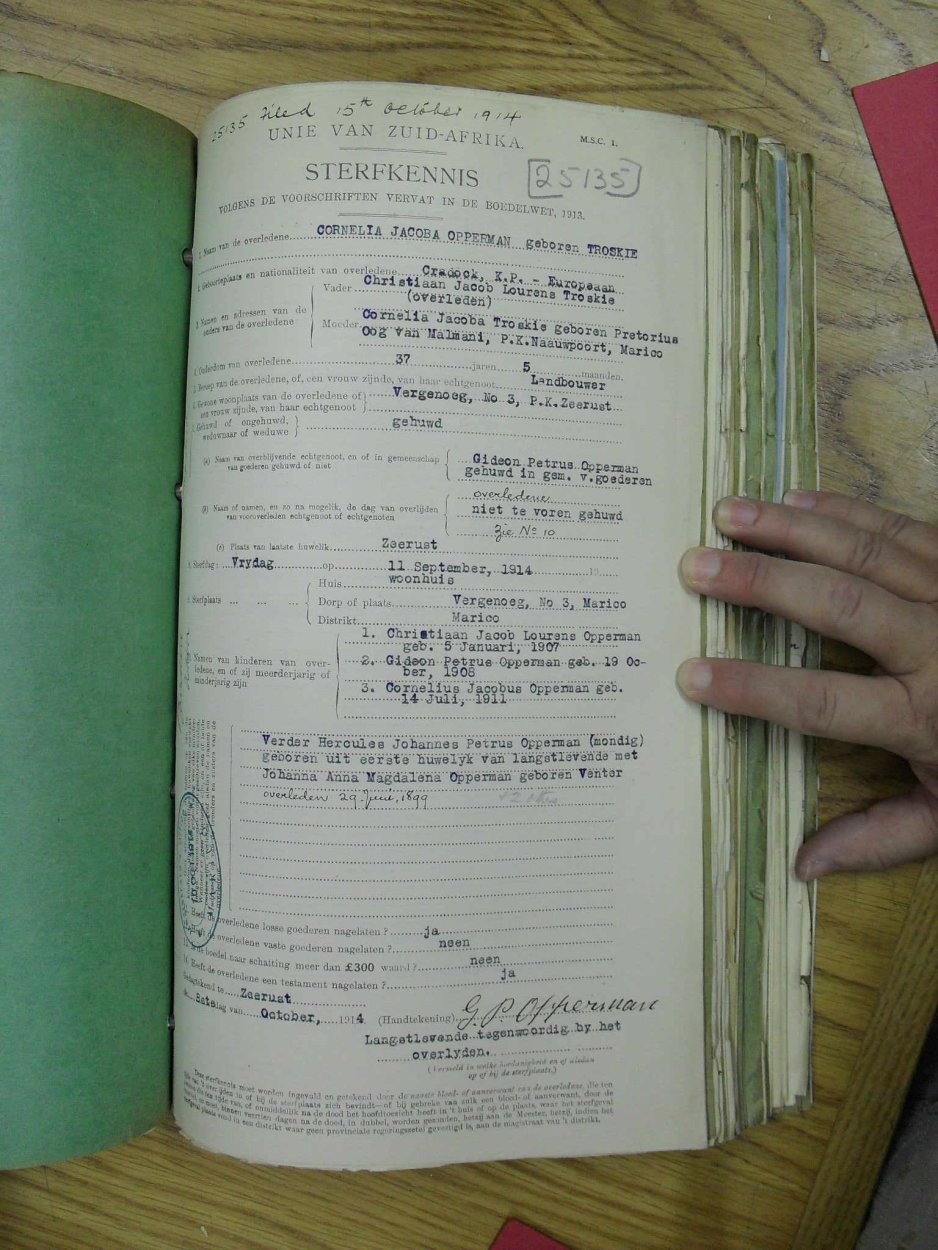 25135 Filed 15th October 1914
UNIE VAN ZUID-AFRIKA.
M.S.C. 1.
STERFKENNIS
25135
VOLGENS DE VOORSCHRIFTEN VERVAT IN DE BOEDELWET, 1913.
1. Naam van de overledene CORNELIA JACOBA OPPERMAN geboren TROSKIE
2. Geboorteplaats en nationaliteit van overledene Cradock, K.P. - Europeaan
3. Namen en adressen van de ouders van de overledene
Vader Christiaan Jacob Lourens Troskie
(overleden)
Moeder Cornelia Jacoba Troskie geboren Pretorius
Oog van Malmani, P.K.Naauwpoort, Marico
4. Ouderdom van overledene 37 jaren 5 maanden.
5. Beroep van de overledene, of, een vrouw zijnde, van haar echtgenoot Landbouwer
6. Gewone woonplaats van de overledene of
een vrouw zijnde, van haar echtgenoot Vergenoeg, No 3, P.K.Zeerust
Gehuwd of ongehuwd,
weduwnaar of weduwe gehuwd
(a) Naam van overblijvende echtgenoot, en of in gemeenschap
van goederen gehuwd of niet
Gideon Petrus Opperman
gehuwd in gem. v.goederen
(b) Naam of namen, en zo na mogelik, de dag van overlijden
van vooroverleden echtgenoot of echtgenoten
overledene
niet te voren gehuwd
Zie No 10
(c) Plaats van laatste huwelik Zeerust
Sterfdag: Vrydag op 11 September, 1914 19
Sterfplaats
Huis woonhuis
Dorp of plaats Vergenoeg, No 3, Marico
Distrikt Marico
Namen van kinderen van over-
ledene, en of zij meerderjarig of
minderjarig zijn
1. Christiaan Jacob Lourens Opperman
geb. 5 Januari, 1907
2. Gideon Petrus Opperman geb. 19 Oc-
ber, 1908
3. Cornelius Jacobus Opperman geb.
14 Juli, 1911
Verder Hercules Johannes Petrus Opperman (mondig)
geboren uit eerste huwelyk van langstlevende met
Johanna Anna Magdalena Opperman geboren Venter
overleden 29 Juni, 1899
Heeft de overledene losse goederen nagelaten? ja
Heeft de overledene vaste goederen nagelaten? neen
Is de boedel naar schatting meer dan £300 waard? neen
14. Heeft de overledene een testament nagelaten? ja
Gedagtekend te Zeerust
de 8ste dag van October, 1914.
(Handtekening) G. P. Opperman
Langstlevende tegenwoordig by het
overlyden.
(Vermeld in welke hoedanigheid en of aladan
op of bij de sterfplaats.)
Deze sterfkennis moet worden ingevuld en getekend door de naaste bloed- of aanverwant van de overledene, die ten